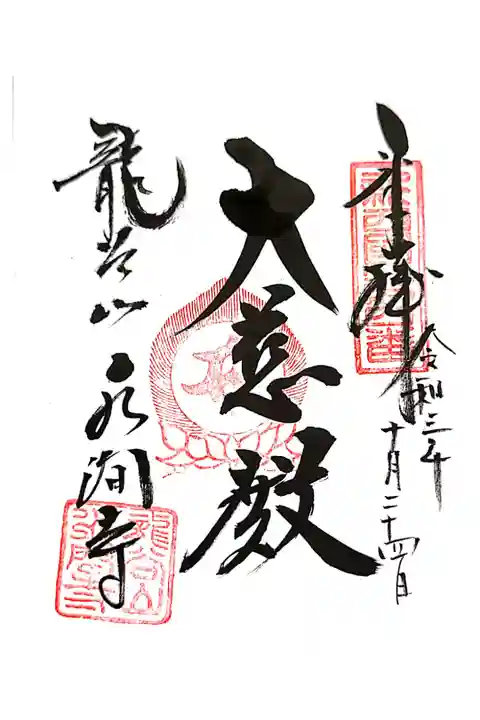 奉拝
令和三年
十月二十四日
大慈殿
龍谷山
永澗寺